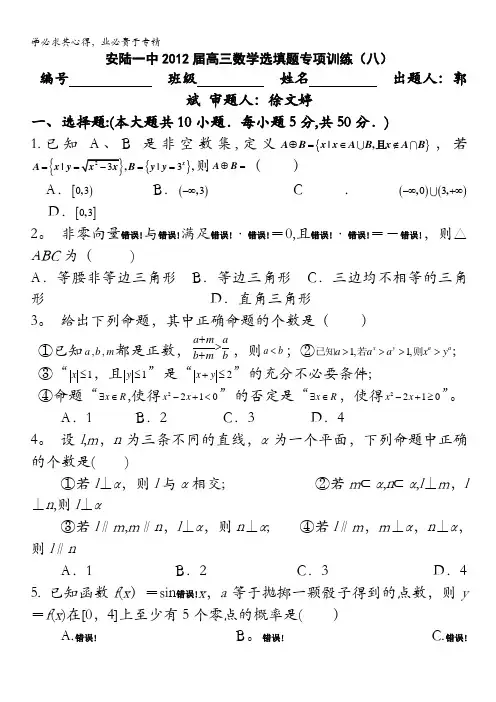 学必求其心得，业必贵于专精
安陆一中2012届高三数学选填题专项训练（八）
编号 班级 姓名 出题人：郭
斌 审题人：徐文婷
一、选择题:(本大题共10小题．每小题5分,共50分．)
1.已知 A、B 是非空数集,定义 A⊕B={x|x∈A∪B,且x∉A∩B}，若
A={x|y=√(x²-3x)},B={y|y=3ˣ},则 A⊕B=（ ）
A．[0,3) B．(-∞,3) C ． (-∞,0)∪(3,+∞)
D．[0,3]
2。 非零向量错误!与错误!满足错误!·错误!＝0,且错误!·错误!＝－错误!，则△
ABC为（ ）
A．等腰非等边三角形 B．等边三角形 C．三边均不相等的三角
形 D．直角三角形
3。 给出下列命题，其中正确命题的个数是（ ）
①已知a,b,m都是正数，(a+m)/(b+m)>a/b，则a<b；②已知a>1,若aˣ>aʸ>1,则xᵃ>yᵃ;
③“|x|≤1，且|y|≤1”是“|x+y|≤2”的充分不必要条件;
④命题“∃x∈R,使得x²-2x+1<0”的否定是“∃x∈R，使得x²-2x+1≥0”。
A．1 B．2 C．3 D．4
4。 设l,m，n为三条不同的直线，α为一个平面，下列命题中正确
的个数是( )
①若l⊥α，则l与α相交; ②若m⊂α,n⊂α,l⊥m，l
⊥n,则l⊥α
③若l∥m,m∥n，l⊥α，则n⊥α; ④若l∥m，m⊥α，n⊥α，
则l∥n
A．1 B．2 C．3 D．4
5. 已知函数f(x)＝sin错误!x，a等于抛掷一颗骰子得到的点数，则y
＝f(x)在[0，4]上至少有5个零点的概率是( )
A.错误! B。错误! C.错误!